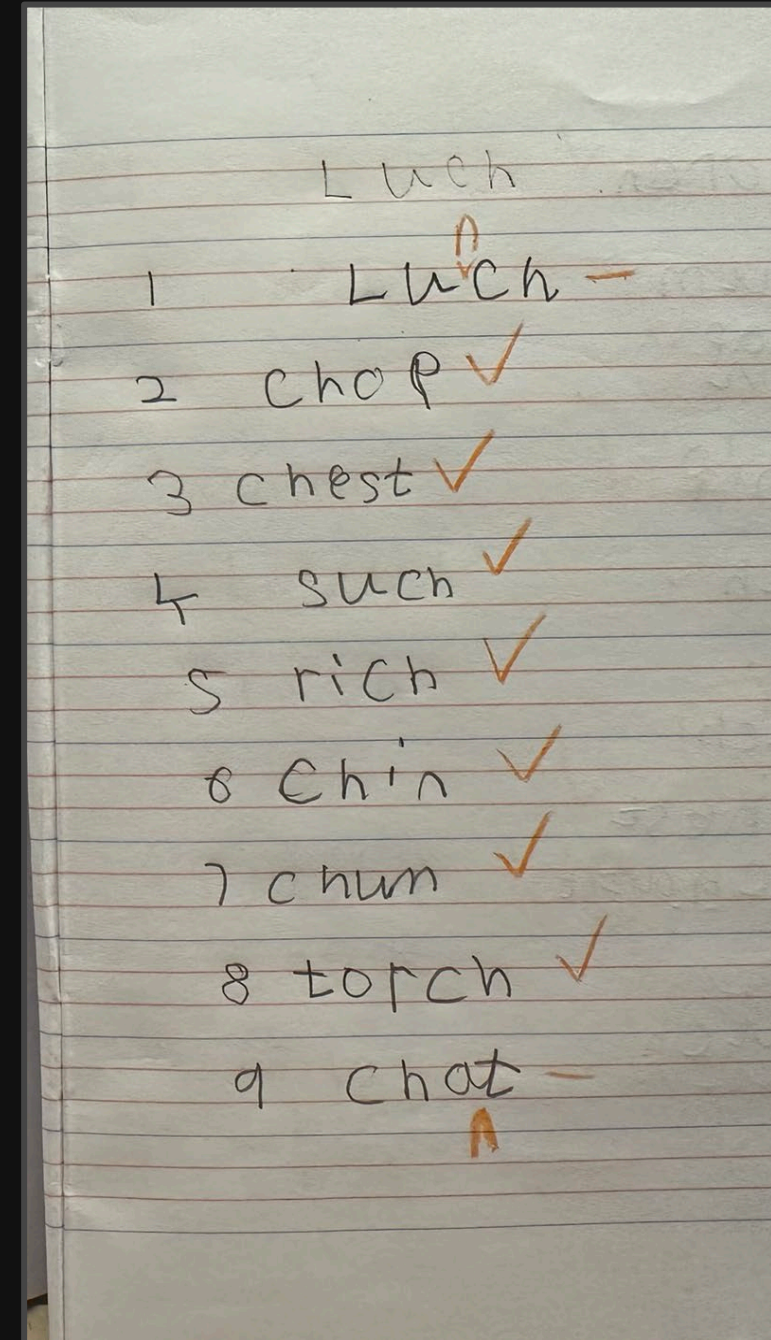 Luch
n
1 Luch –
2 chop ✓
3 chest ✓
4 such ✓
5 rich ✓
6 Chin ✓
7 chum ✓
8 torch ✓
9 chat –
n